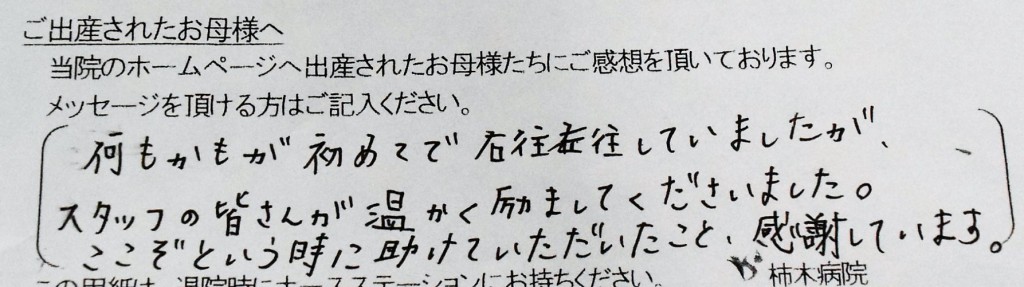 ご出産されたお母様へ
当院のホームページへ出産されたお母様たちにご感想を頂いております。
メッセージを頂ける方はご記入ください。
何もかもが初めてで右往左往していましたが、
スタッフの皆さんが温かく励ましてくださいました。
ここぞという時に助けていただいたこと、感謝しています。
この用紙は、退院時にナースステーションにお持ちください。
柿木病院